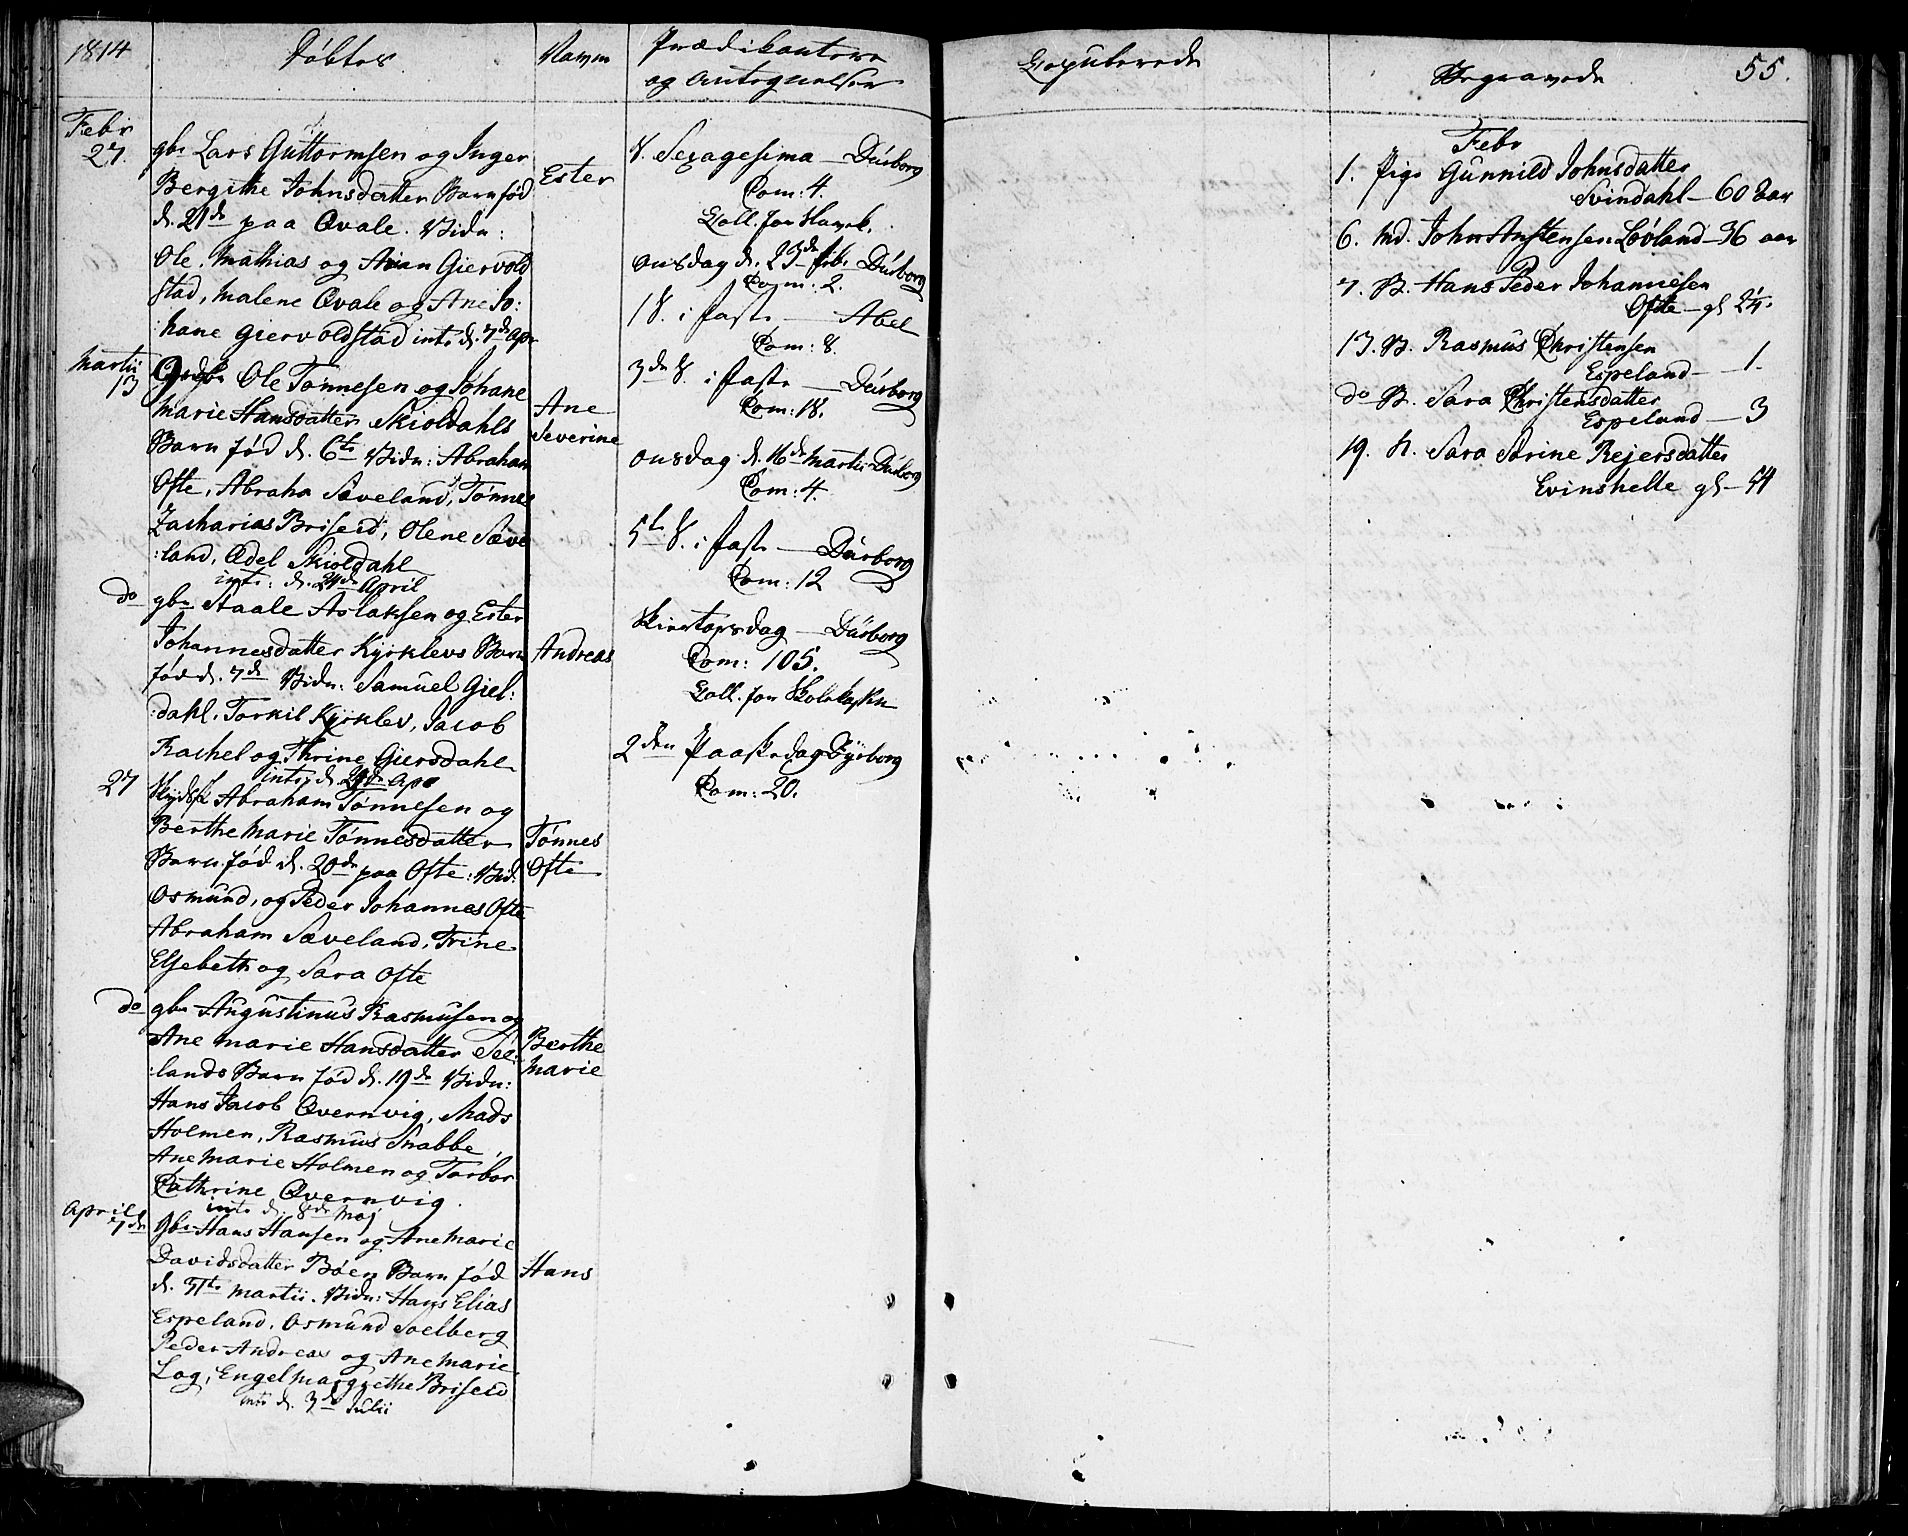 1814
Døbte
Navn
Prædikantere
og Antegnelser
Copulerede
Begravede
55.
Febr
27
gbr Lars Guttormsen og Inger
Bergithe Johnsdatter Barn fød
d. 21de paa Qvale. Vidn:
Ole, Mathias og Anan Giervold
stad, Malene Qvale og Ane Jo:
:hane Giervoldstad intr d. 7de Apr
Ester
Martii
13
Ole Tønnesen og Johane
Marie Hansdatter Skioldahls
Barn fød d. 6te Vidn: Abraham
Ofte, Abraha Sæveland, Tønnes
Zacharias Briseid, Olene Sæve
:land, Ædel Skioldahl
intr: d. 24de April
Ane
Severine
do
gbr Staale Aslaksen og Ester
Johannesdatter Kyrklevs Barn
fød d. 7de Vidn: Samuel Giel:
:dahl, Torkil Kyrklev, Jacob
Rachel og Thrine Giersdahl
intr d. Apr
Andreas
27
Abraham Tønnesen og
Berthe Marie Tønnesdatter
Barn fød d. 20de paa Ofte. Vid:
Osmund, og Peder Johannes Ofte
Abraham Sæveland, Trine
Elsebeth og Sara Ofte
Tønnes
Ofte
do
gbr Augustinus Rasmusen og
Ane Marie Hansdatter See:
:lands Barn fød d. 19de Vidn:
Hans Jacob Qvernvig, Mads
Holmen, Rasmus Snabbe,
Ane Marie Holmen og Torbor
Cathrine Qvernvig.
intr d. 8de Maj
Berthe
Marie
April
7de
gbr Hans Hansen og Ane Marie
Davidsdatter Bøen Barn fød
d. 31te Martii. Vidn: Hans Elias
Espeland, Osmund Soelberg
Peder Andreas og Ane Marie
Log, Engel Margrethe Briseid
intr d. 3de Julii
Hans
S. Sexagesima — Dürborg
Com: 4.
Coll. for
Onsdag d. 23de Febr Dürborg
Com: 2.
1 S. i Faste — Abel
Com: 8.
3de S. i Faste — Dürborg
Com: 18.
Onsdag d. 16de Martii Dürborg
Com: 4.
5te S. i Faste — Dürborg
Com: 12
Skirtorsdag — Dürborg
Com: 105.
Coll. for Skolekassen
2den Paaskedag Dyrborg
Com: 20.
Febr
1. Pige Gunnild Johnsdatter
Svindahl — 60 Aar
6. Md. John Anstensen Løvland — 36 aar
7. B. Hans Peder Johannesen
Ofte — gl
13. B. Rasmus Christensen
Espeland — 1.
do B. Sara Christensdatter
Espeland — 3
19. K. Sara Serine Rejersdatter
Evinshelle gl — 54